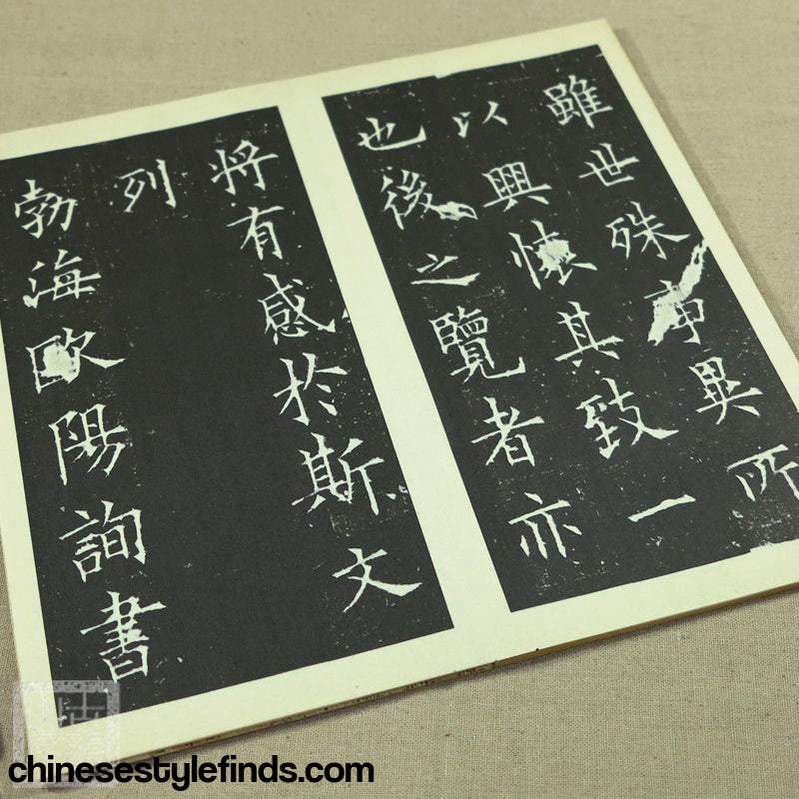 雖世殊事異所
以興懷其致一
也後之覽者亦
將有感於斯文
列
勃海歐陽詢書
chinesestylefinds.com